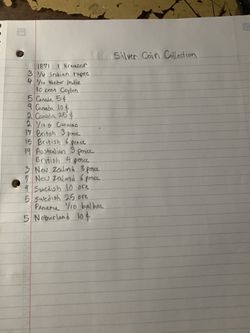 Silver Coin Collection
1871 1 Kreuzer
3 1/4 Indian rupee
4 1/10 Neder Indie
10 cent Ceylon
5 Canada 5¢
9 Canada 10¢
2 Canada 25¢
2 1/10 G Curacao
17 British 3 pence
15 British 6 pence
19 Australian 3 pence
British 4 pence
3 New Zealand 3 pence
New Zealand 6 pence
9 Swedish 10 ore
5 Swedish 25 ore
Panama 1/10 balboa
5 Netherland 10¢